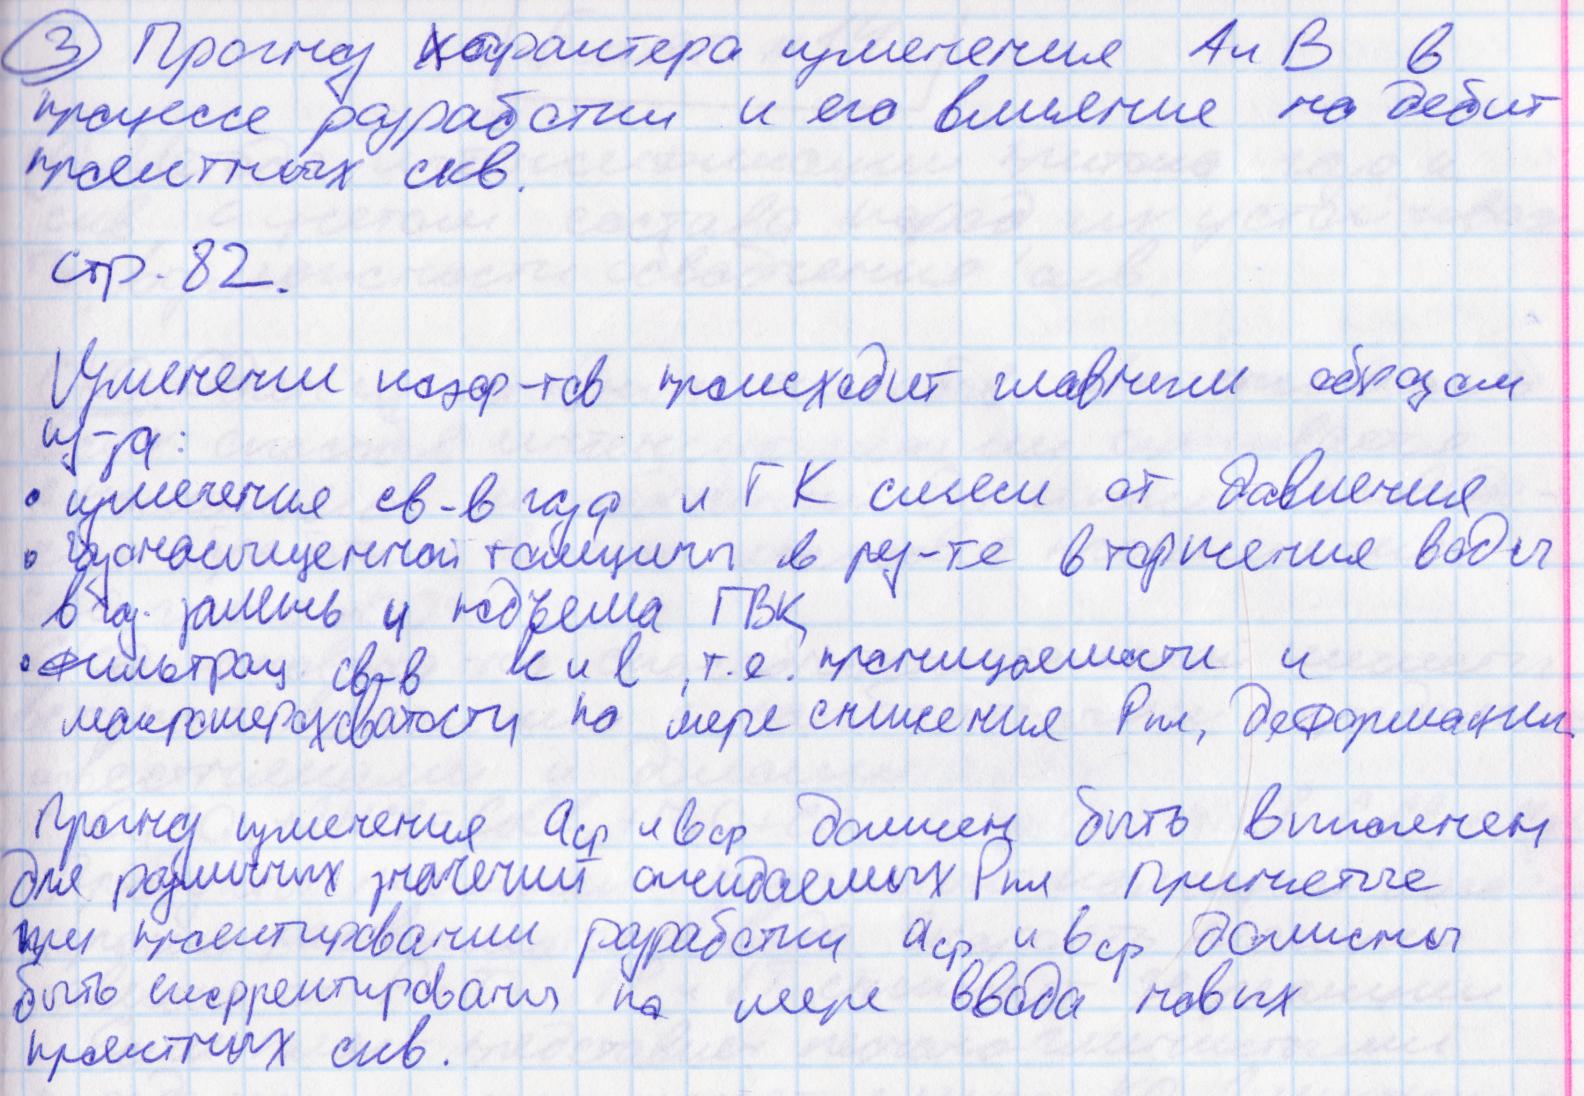 ③ Прогноз характера изменения А и В в
процессе разработки и его влияние на дебит
проектных скв.
стр. 82.
Изменении коэф-тов происходит главным образом
из-за:
• изменения св-в газа и ГК смеси от давления
• газонасыщенной толщины в рез-те вторжения воды
в газ. залежь и подъема ГВК
• Фильтрац. св-в k и l, т.е. проницаемости и
макрошероховатости по мере снижения Рпл, деформации
Прогноз изменения аср и вср должен быть выполнен
для различных значений ожидаемых Рпл Принятые
при проектировании разработки аср и вср должны
быть скорректированы по мере ввода новых
проектных скв.